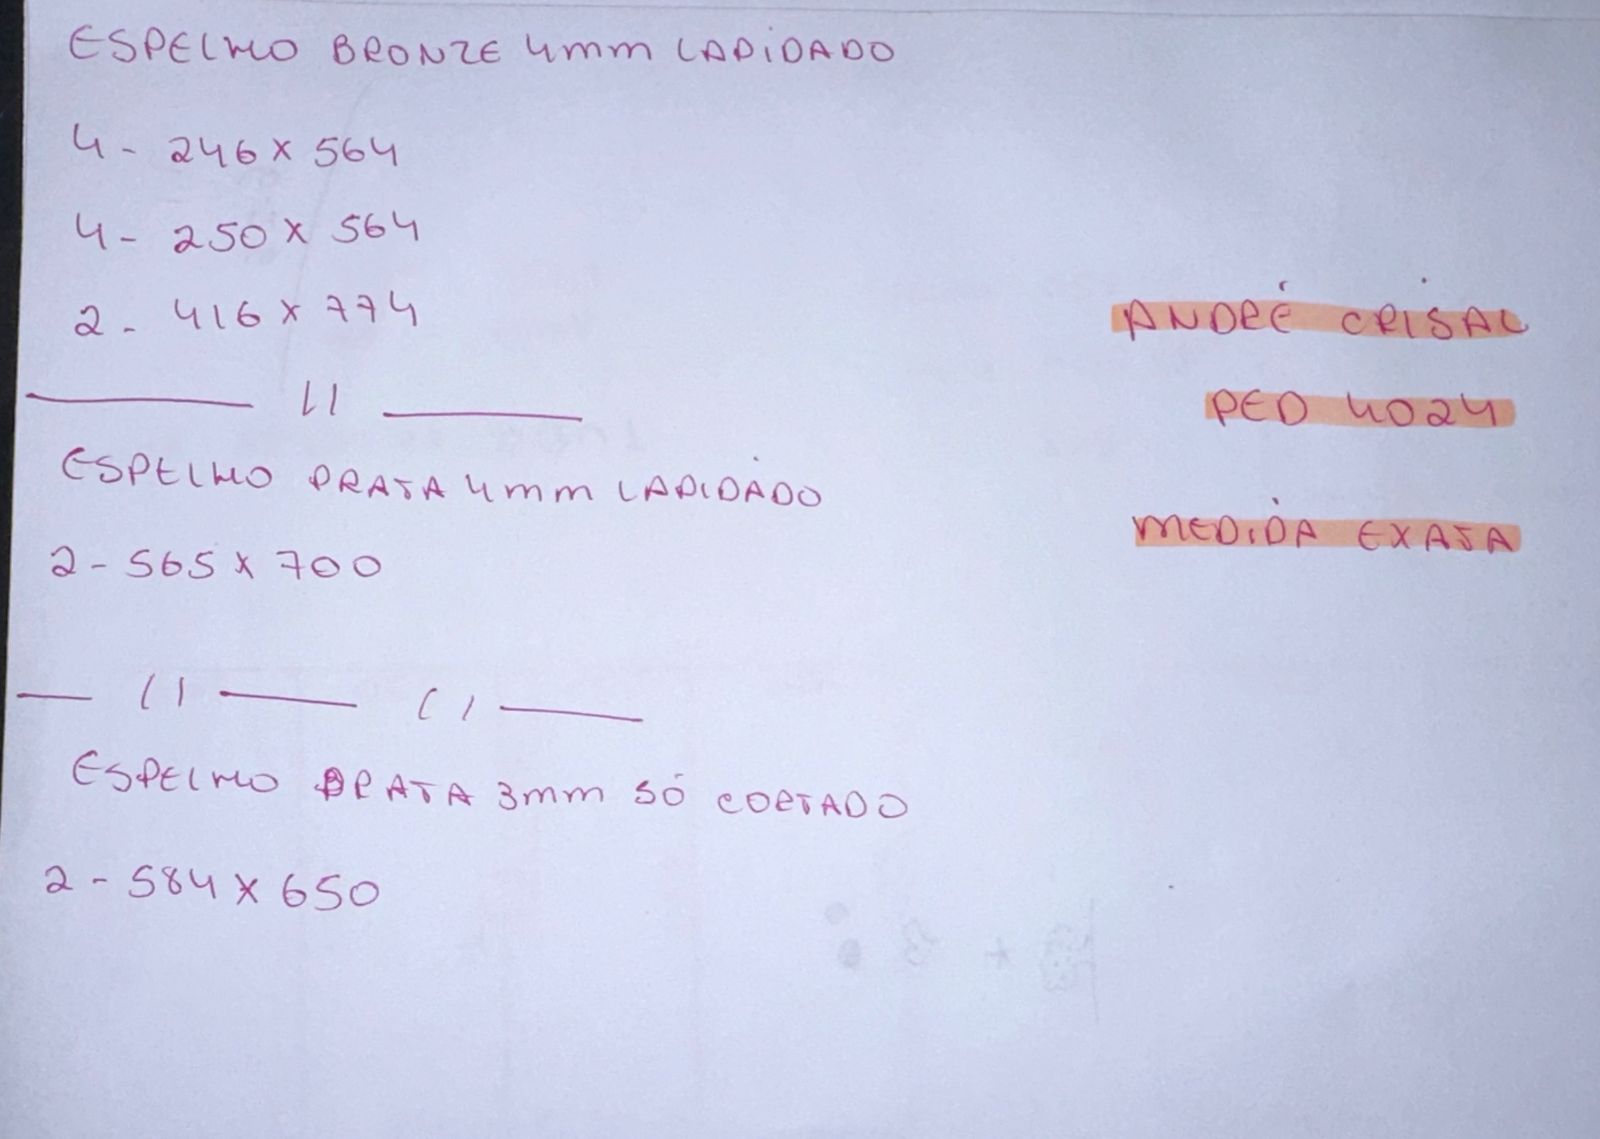 ESPELHO BRONZE 4mm LAPIDADO
4 - 246 x 564
4 - 250 x 564
2 - 416 x 774
ANDRÉ CRISAL
PED 4024
MEDIDA EXATA
ESPELHO PRATA 4mm LAPIDADO
2 - 565 x 700
ESPELHO PRATA 3mm SÓ CORTADO
2 - 584 x 650